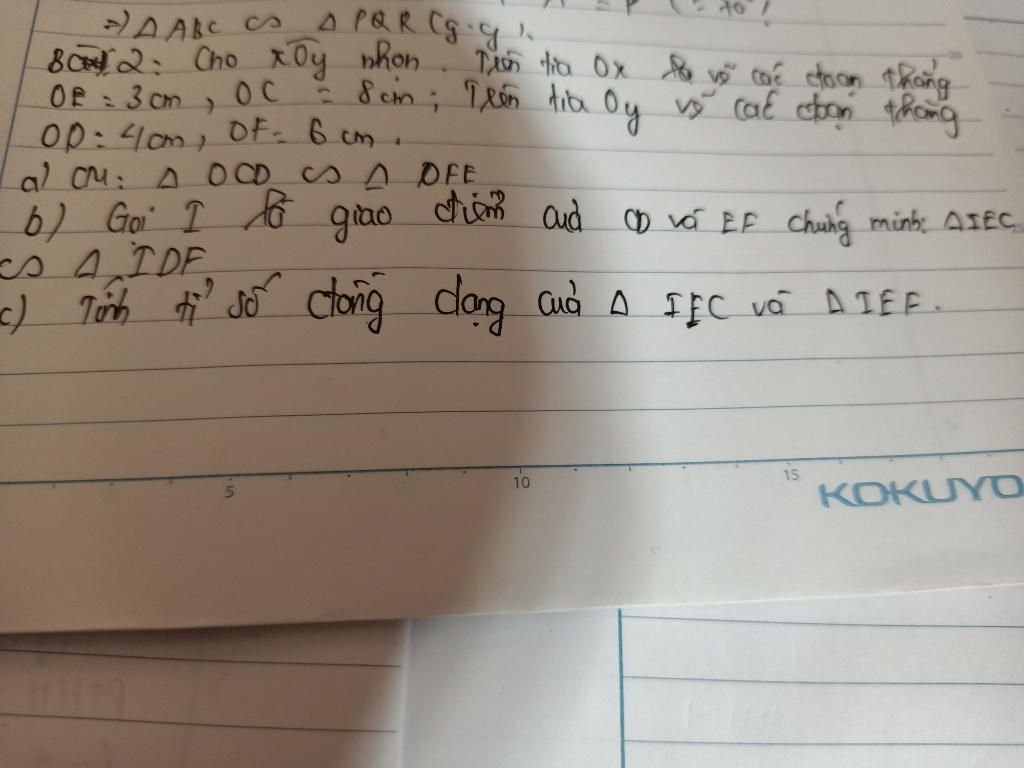 ⇒) Δ ABC ∽ Δ PQR (g.g).
Bài 2: Cho xOy nhọn. Trên tia Ox vẽ các đoạn thẳng
OE = 3cm, OC = 8cm; Trên tia Oy vẽ các đoạn thẳng
OD = 4cm, OF = 6cm.
a) CM: Δ OCD ∽ Δ OFE
b) Gọi I là giao điểm của CD và EF chứng minh: ΔIEC
∽ Δ IDF
c) Tính tỉ số đồng dạng của Δ IEC và Δ IEF.
5 10 15
KOKUYO